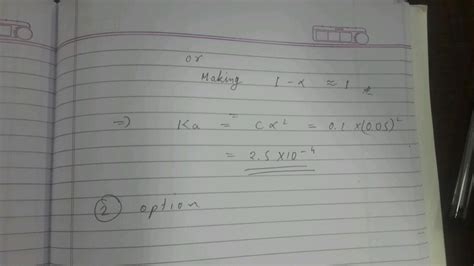 or
Making 1 - α ≈ 1
=> Ka = Cα² = 0.1 × (0.05)²
= 2.5 × 10⁻⁴
② option